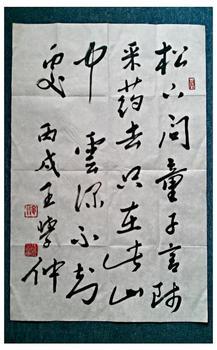 松下问童子言师
采药去只在此山
中　雲深不知
處　丙戌王学仲